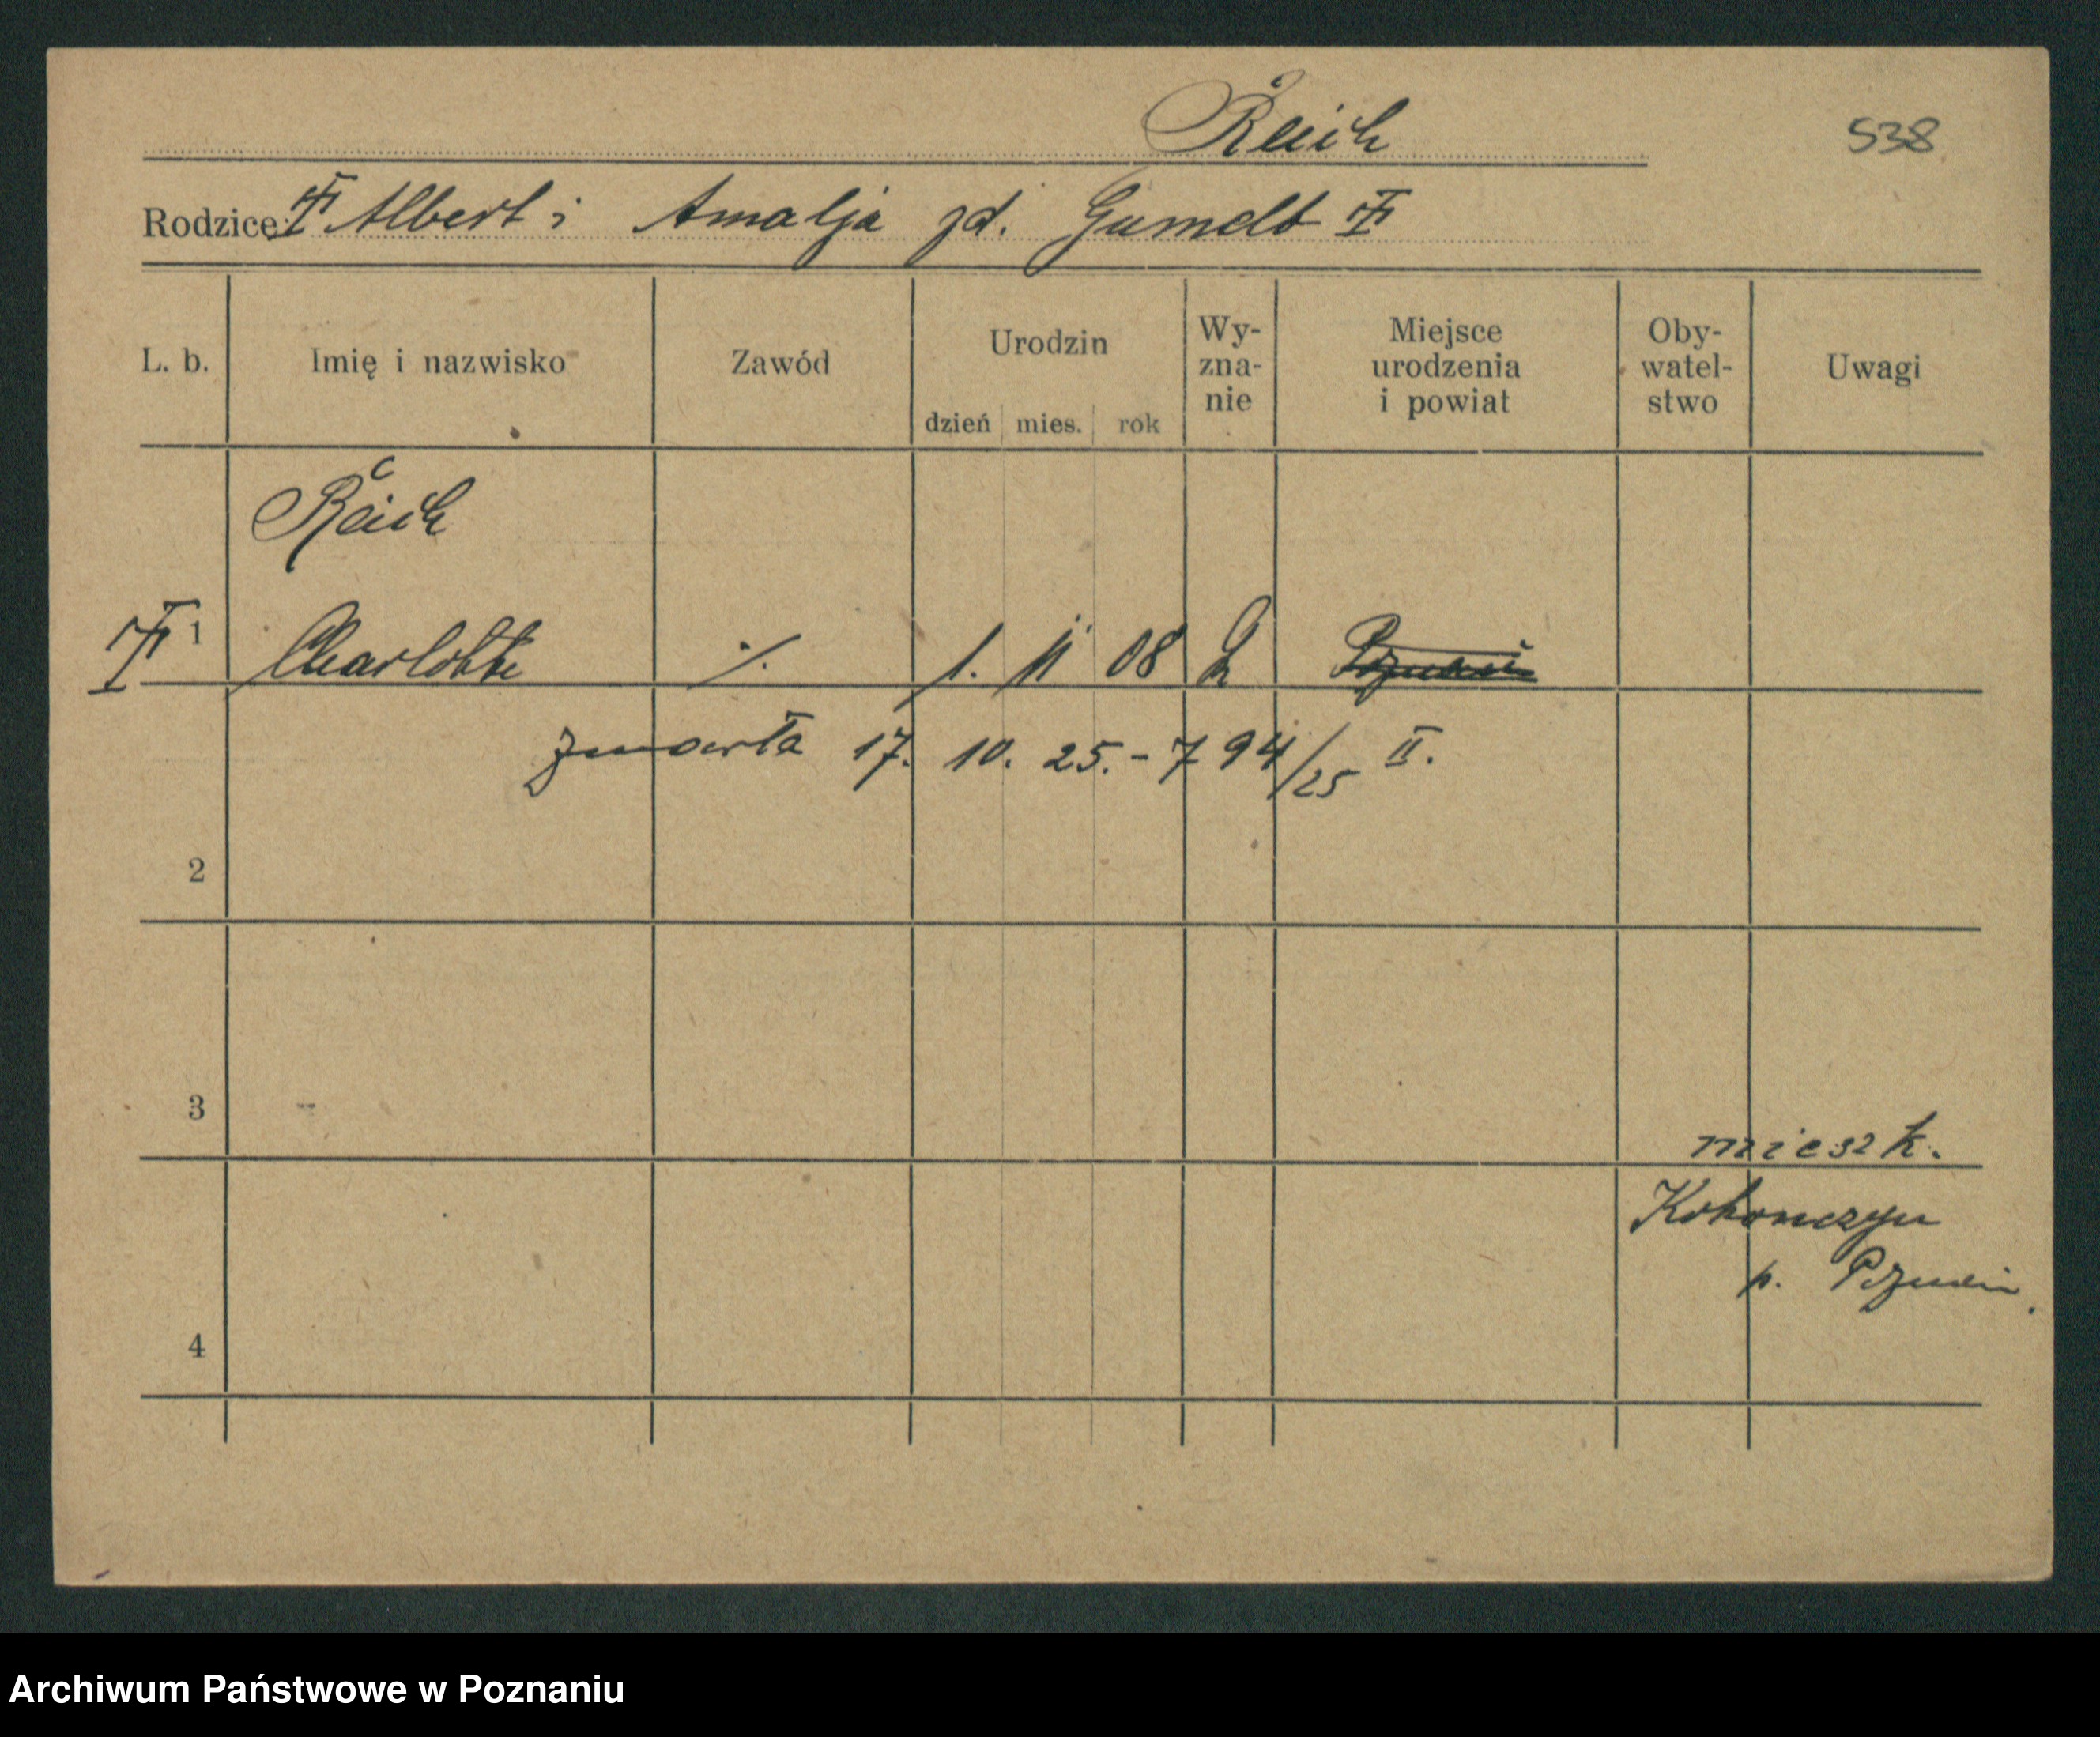 Reich
538
Rodzice: Albert i Amalja zd. Gumelt
L. b.
Imię i nazwisko
Zawód
Urodzin
dzień mies. rok
Wy-
zna-
nie
Miejsce
urodzenia
i powiat
Oby-
watel-
stwo
Uwagi
Reich
1 Charlotte ·/. 1. 11 08
zmarła 17. 10. 25. - 794/25 II.
2
3
mieszk.
p. Poznań.
4
Archiwum Państwowe w Poznaniu